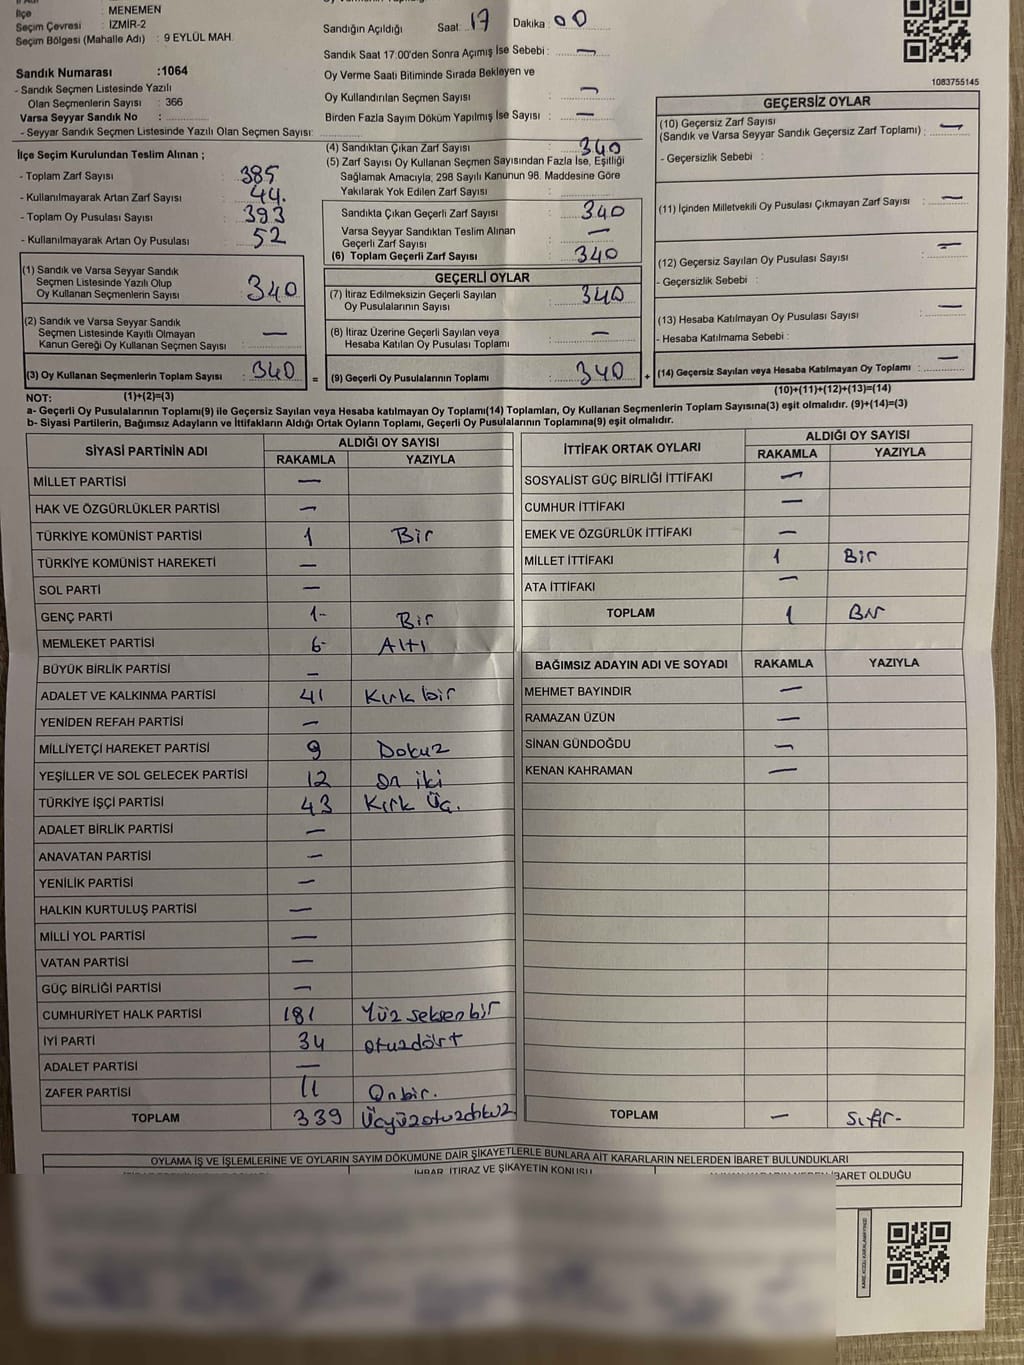 İlçe : MENEMEN
Seçim Çevresi : İZMİR-2
Seçim Bölgesi (Mahalle Adı) : 9 EYLÜL MAH.
Sandık Numarası :1064
- Sandık Seçmen Listesinde Yazılı
Olan Seçmenlerin Sayısı : 366
Varsa Seyyar Sandık No :
- Seyyar Sandık Seçmen Listesinde Yazılı Olan Seçmen Sayısı:
Sandığın Açıldığı Saat: 17 Dakika : 00
Sandık Saat 17:00'den Sonra Açımış İse Sebebi : —
Oy Verme Saati Bitiminde Sırada Bekleyen ve
Oy Kullandırılan Seçmen Sayısı : —
Birden Fazla Sayım Döküm Yapılmış İse Sayısı : —
1083755145
İlçe Seçim Kurulundan Teslim Alınan ;
- Toplam Zarf Sayısı : 385
- Kullanılmayarak Artan Zarf Sayısı : 44.
- Toplam Oy Pusulası Sayısı : 393
- Kullanılmayarak Artan Oy Pusulası : 52
(1) Sandık ve Varsa Seyyar Sandık
Seçmen Listesinde Yazılı Olup
Oy Kullanan Seçmenlerin Sayısı : 340
(2) Sandık ve Varsa Seyyar Sandık
Seçmen Listesinde Kayıtlı Olmayan
Kanun Gereği Oy Kullanan Seçmen Sayısı : —
(3) Oy Kullanan Seçmenlerin Toplam Sayısı : 340
(4) Sandıktan Çıkan Zarf Sayısı : 340
(5) Zarf Sayısı Oy Kullanan Seçmen Sayısından Fazla İse, Eşitliği
Sağlamak Amacıyla, 298 Sayılı Kanunun 98. Maddesine Göre
Yakılarak Yok Edilen Zarf Sayısı :
Sandıkta Çıkan Geçerli Zarf Sayısı : 340
Varsa Seyyar Sandıktan Teslim Alınan
Geçerli Zarf Sayısı : —
(6) Toplam Geçerli Zarf Sayısı : 340
GEÇERLİ OYLAR
(7) İtiraz Edilmeksizin Geçerli Sayılan
Oy Pusulalarının Sayısı : 340
(8) İtiraz Üzerine Geçerli Sayılan veya
Hesaba Katılan Oy Pusulası Toplamı : —
= (9) Geçerli Oy Pusulalarının Toplamı : 340 +
GEÇERSİZ OYLAR
(10) Geçersiz Zarf Sayısı
(Sandık ve Varsa Seyyar Sandık Geçersiz Zarf Toplamı) : —
- Geçersizlik Sebebi :
(11) İçinden Milletvekili Oy Pusulası Çıkmayan Zarf Sayısı : —
(12) Geçersiz Sayılan Oy Pusulası Sayısı : —
- Geçersizlik Sebebi :
(13) Hesaba Katılmayan Oy Pusulası Sayısı : —
- Hesaba Katılmama Sebebi :
(14) Geçersiz Sayılan veya Hesaba Katılmayan Oy Toplamı : —
NOT: (1)+(2)=(3) (10)+(11)+(12)+(13)=(14)
a- Geçerli Oy Pusulalarının Toplamı(9) ile Geçersiz Sayılan veya Hesaba katılmayan Oy Toplamı(14) Toplamları, Oy Kullanan Seçmenlerin Toplam Sayısına(3) eşit olmalıdır. (9)+(14)=(3)
b- Siyasi Partilerin, Bağımsız Adayların ve İttifakların Aldığı Ortak Oyların Toplamı, Geçerli Oy Pusulalarının Toplamına(9) eşit olmalıdır.
SİYASİ PARTİNİN ADI ALDIĞI OY SAYISI
RAKAMLA YAZIYLA
MİLLET PARTİSİ —
HAK VE ÖZGÜRLÜKLER PARTİSİ —
TÜRKİYE KOMÜNİST PARTİSİ 1 Bir
TÜRKİYE KOMÜNİST HAREKETİ —
SOL PARTİ —
GENÇ PARTİ 1- Bir
MEMLEKET PARTİSİ 6- Altı
BÜYÜK BİRLİK PARTİSİ —
ADALET VE KALKINMA PARTİSİ 41 Kırk bir
YENİDEN REFAH PARTİSİ —
MİLLİYETÇİ HAREKET PARTİSİ 9 Dokuz
YEŞİLLER VE SOL GELECEK PARTİSİ 12 On iki
TÜRKİYE İŞÇİ PARTİSİ 43 Kırk Üç.
ADALET BİRLİK PARTİSİ —
ANAVATAN PARTİSİ —
YENİLİK PARTİSİ —
HALKIN KURTULUŞ PARTİSİ —
MİLLİ YOL PARTİSİ —
VATAN PARTİSİ —
GÜÇ BİRLİĞİ PARTİSİ —
CUMHURİYET HALK PARTİSİ 181 Yüz seksen bir
İYİ PARTİ 34 otuzdört
ADALET PARTİSİ —
ZAFER PARTİSİ 11 Onbir.
TOPLAM 339 Üçyüzotuzdokuz
İTTİFAK ORTAK OYLARI ALDIĞI OY SAYISI
RAKAMLA YAZIYLA
SOSYALİST GÜÇ BİRLİĞİ İTTİFAKI —
CUMHUR İTTİFAKI —
EMEK VE ÖZGÜRLÜK İTTİFAKI —
MİLLET İTTİFAKI 1 Bir
ATA İTTİFAKI —
TOPLAM 1 Bir
BAĞIMSIZ ADAYIN ADI VE SOYADI RAKAMLA YAZIYLA
MEHMET BAYINDIR —
RAMAZAN ÜZÜN —
SİNAN GÜNDOĞDU —
KENAN KAHRAMAN —
TOPLAM — Sıfır-
OYLAMA İŞ VE İŞLEMLERİNE VE OYLARIN SAYIM DÖKÜMÜNE DAİR ŞİKAYETLERLE BUNLARA AİT KARARLARIN NELERDEN İBARET BULUNDUKLARI
İHBAR, İTİRAZ VE ŞİKAYETİN KONUSU
İBARET OLDUĞU